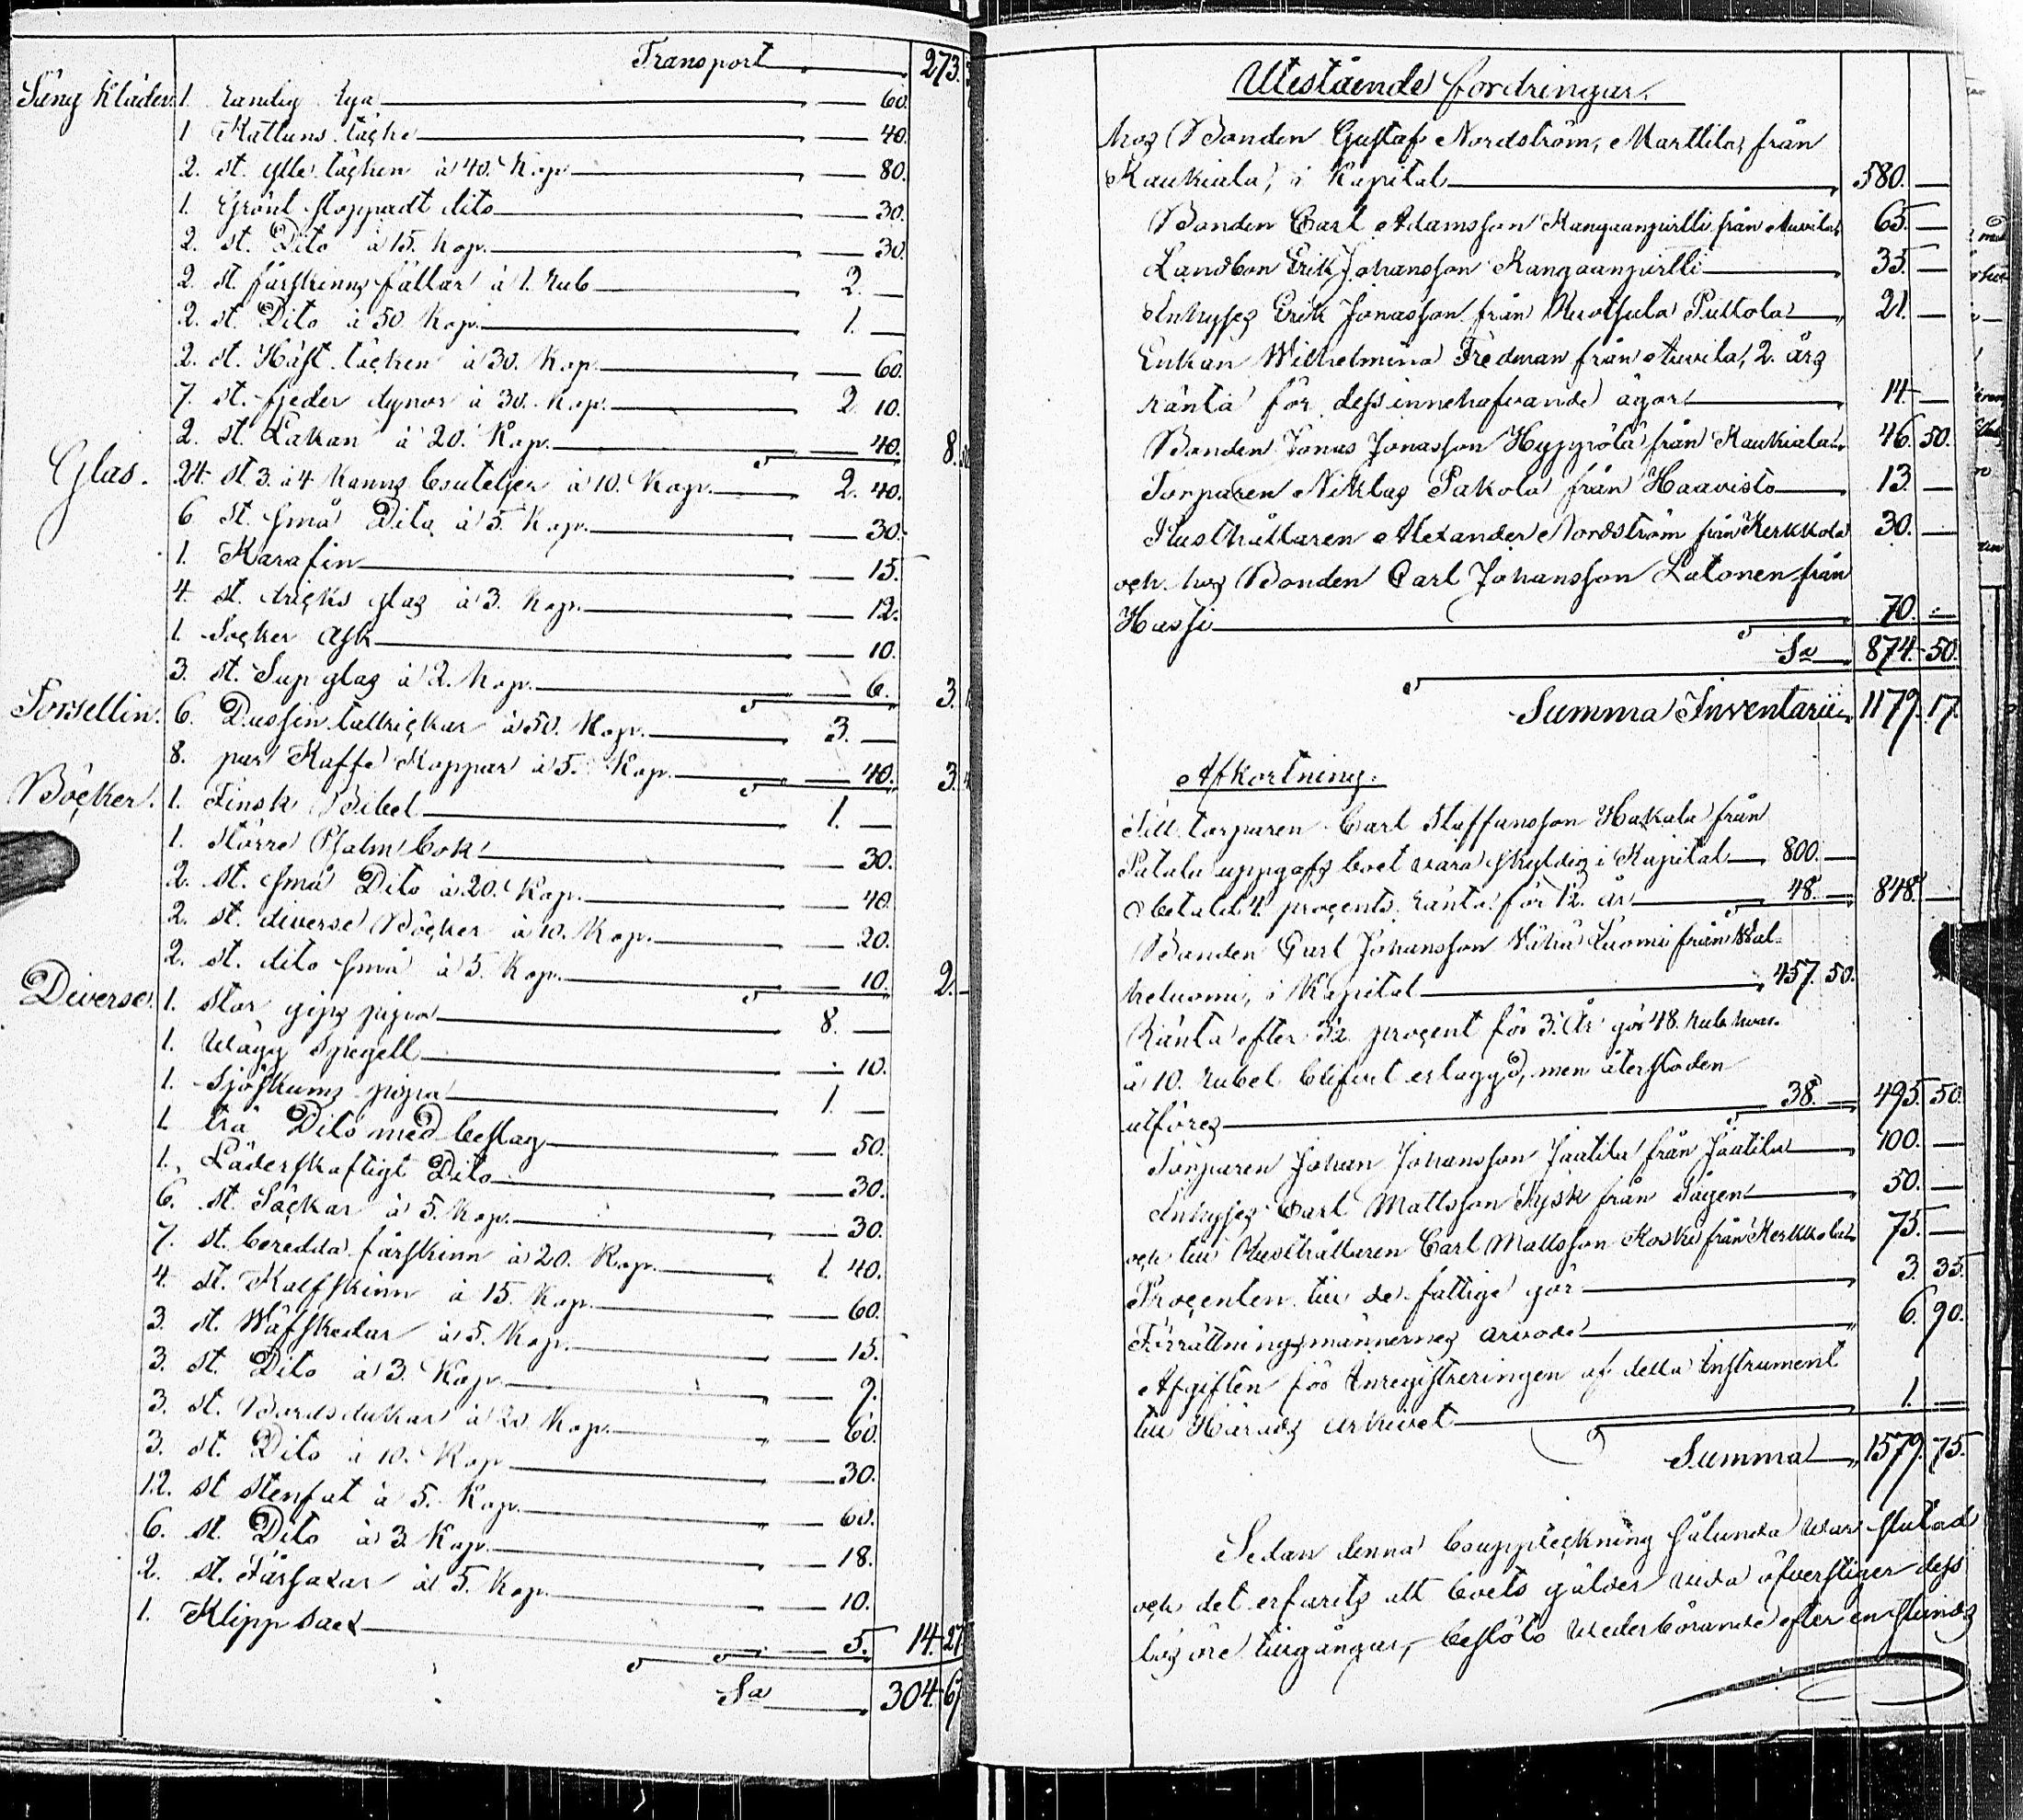 Transport 273.
Säng Kläder. 1. randig rya 60.
1 Kattuns täcke 40.
2. st. ylle täcken à 40. Kop. 80.
1. Grönt stoppadt dito 30.
2. st. Dito à 15. Kop. 30.
2. st. fårskinns fällar à 1. Rub 2. —
2. st. Dito à 50 Kop. 1. —
2. st. Häst täcken à 30. Kop. 60.
7. st. fjeder dynor à 30. Kop. 2. 10.
2. st. Lakan à 20. Kop. 40. 8.
Glas. 24. st 3. à 4 Kanns bouteljer à 10. Kop. 2. 40.
6 st. små Dito à 5. Kop. 30.
1. Karafin 15.
4. st. dricks glas à 3. Kop. 12.
1. Socker ask 10.
3. st. Sup glas à 2. Kop. 6. 3.
Porsellin. 6. Dussin tallrickar à 50. Kop. 3. —
8. par Kaffe Koppar à 5. Kop. 40. 3.
Böcker. 1. Finsk Bibel 1. —
1. större Psalmbok 30.
2. st. små Dito à 20. Kop. 40.
2. st. diverse Böcker à 10. Kop. 20.
2. st. dito små à 5. Kop. 10. 2.
Diverse. 1. stor gips pipa 8. —
1. Wägg Spegell 10.
1. Sjöskums pipa 1. —
1 trä Dito med beslag 50.
1. Läderskaftigt Dito 30.
6. st. Säckar à 5. Kop. 30.
7. st. beredda fårskinn à 20. Kop. 1. 40.
4. st. Kalfskinn à 15. Kop. 60.
3. st. Wäfskedar à 5. Kop. 15.
3. st. Dito à 3. Kop. 9.
3. st. Bordsdukar à 20. Kop. 60.
3. st. Dito à 10. Kop 30.
12. st stenfat à 5. Kop. 60.
6. st. Dito à 3. Kop. 18.
2. st. Fårsaxar à 5. Kop. 10.
1. Klipp sax 5. 14. 27
Sa 304. 67
Utestående fordringar.
hos Bonden Gustaf Nordström, Marttila, från
Kaukiala, i Kapital 580. —
Bonden Carl Adamsson Kangaanpirtti från Auvila 65. —
Landbon Erik Johansson Kangaanpirtti 35. —
Inhyses Erik Jonasson från Ruotsula Puttola 21. —
Enkan Wilhelmina Fredman från Auvila, 2. års
ränta för dess innehafvande ägor 14. —
Bonden Jonas Jonasson Hyppölä från Kaukiala 46. 50.
Torparen Niklas Pakola från Haavisto 13. —
Rusthållaren Alexander Nordström från Kerkkola 30. —
och hos Bonden Carl Johansson Latonen från
Hussi 70. —
Sa 874. 50.
Summa Inventarii 1179. 17.
Afkortning.
Till torparen Carl Staffansson Hakala från
Patala uppgafs boet vara skyldig i Kapital 800. —
obetald 4. procents ränta för 1½ år 48. — 848. —
Bonden Carl Johansson Vähä Luomi från Wal-
keluomi, i Kapital 457. 50.
Ränta efter 3½ procent för 3. År gör 48. Rub. hvar-
å 10. rubel blifvit erlaggd, men återstoden
utföres 38. — 495. 50.
Torparen Johan Johansson Jäätilä från Jäätilä 100. —
Inhyses Carl Mattsson Rysk från Sågen 50. —
och till Rusthållaren Carl Mattsson Koski från Kerkkola 75. —
Procenten till de fattige gör 3. 35.
Förrättningsmännernes arvode 6. 90.
Afgiften för Inregistreringen af detta Instrument
till Härads arkivet 1. —
Summa 1579. 75.
Sedan denna bouppteckning sålunda War slutad
och det erfarits att boets gälder vida öfverstiger dess
lösöre tillgångar, beslöto Wederbörande efter en stunds